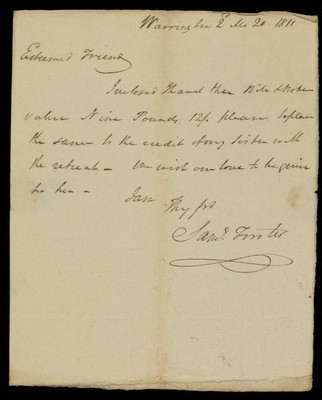 Warrington 2 Mo 20. 1811
Esteemed Friend
Inclosed I hand thee Bill &
value Nine Pounds 12/. please to place
the same to the credit of my Sister with
the retreat - We wish our love to be given
to her -
I am
Thy frd
Saml. Forster